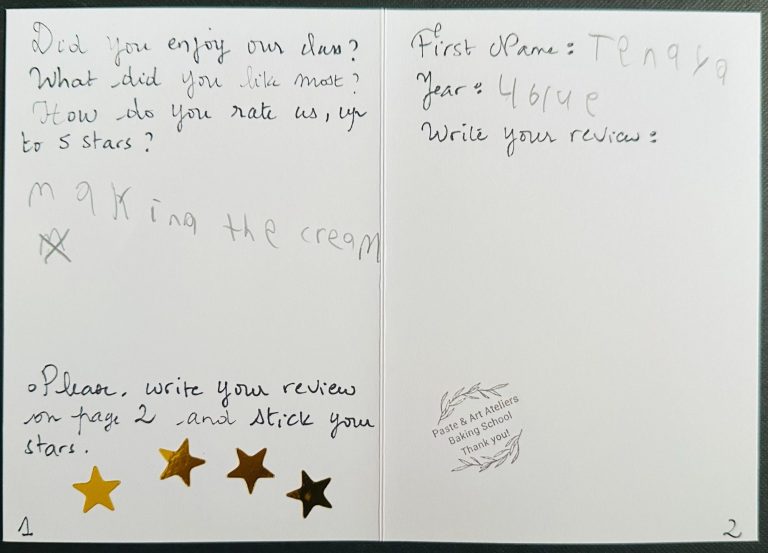 Did you enjoy our class?
What did you like most?
How do you rate us, up
to 5 stars?
making the cream
Please, write your review
on page 2 and stick your
stars.
1
First Name: Tenaya
Year:
Write your review:
Paste & Art Ateliers
Baking School
Thank you!
2